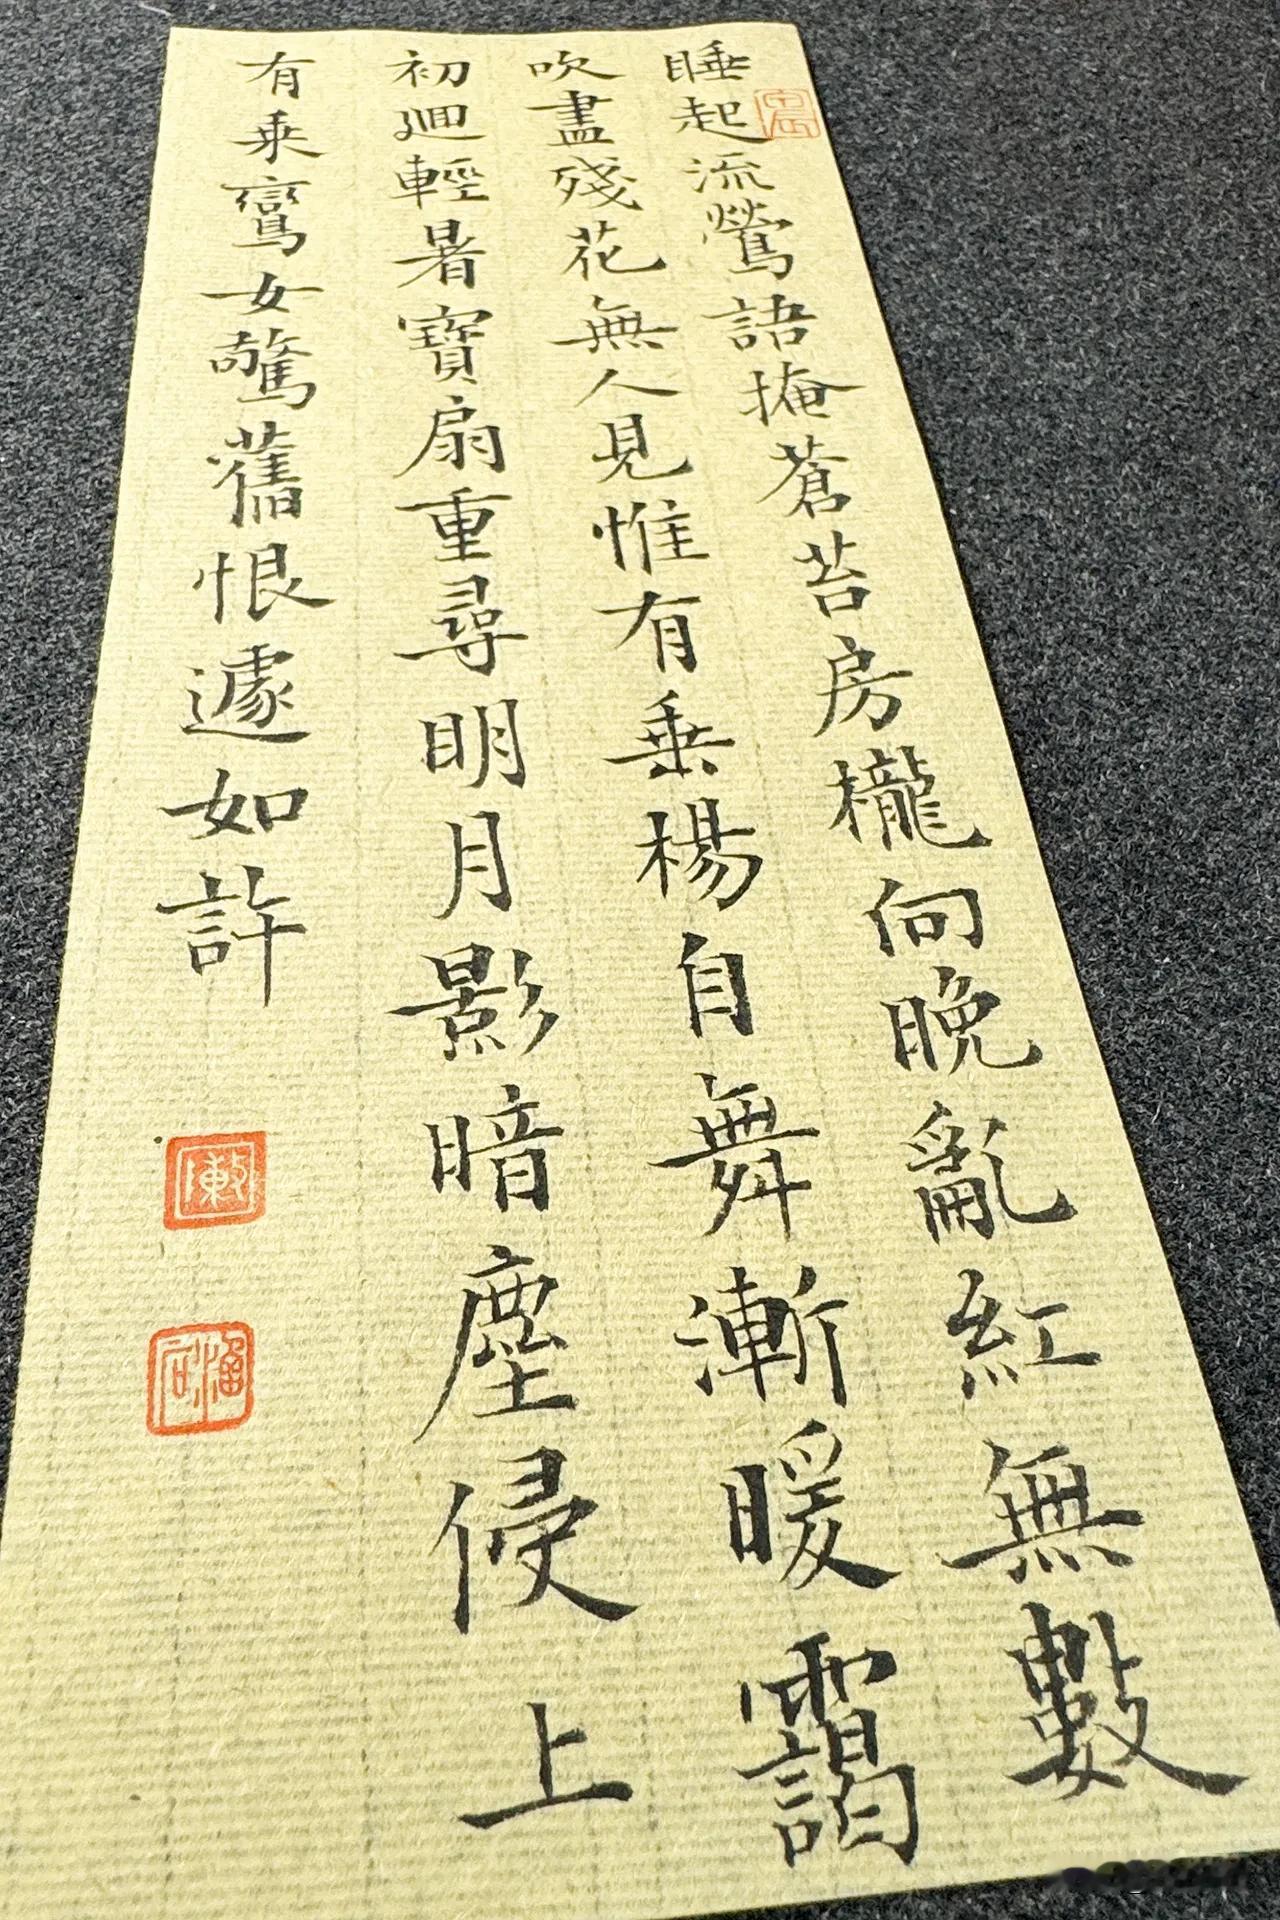 睡起流鶯語掩蒼苔房櫳向晚亂紅無數
吹盡殘花無人見惟有垂楊自舞漸暖靄
初迴輕暑寶扇重尋明月影暗塵侵上
有乘鸞女驚舊恨遽如許